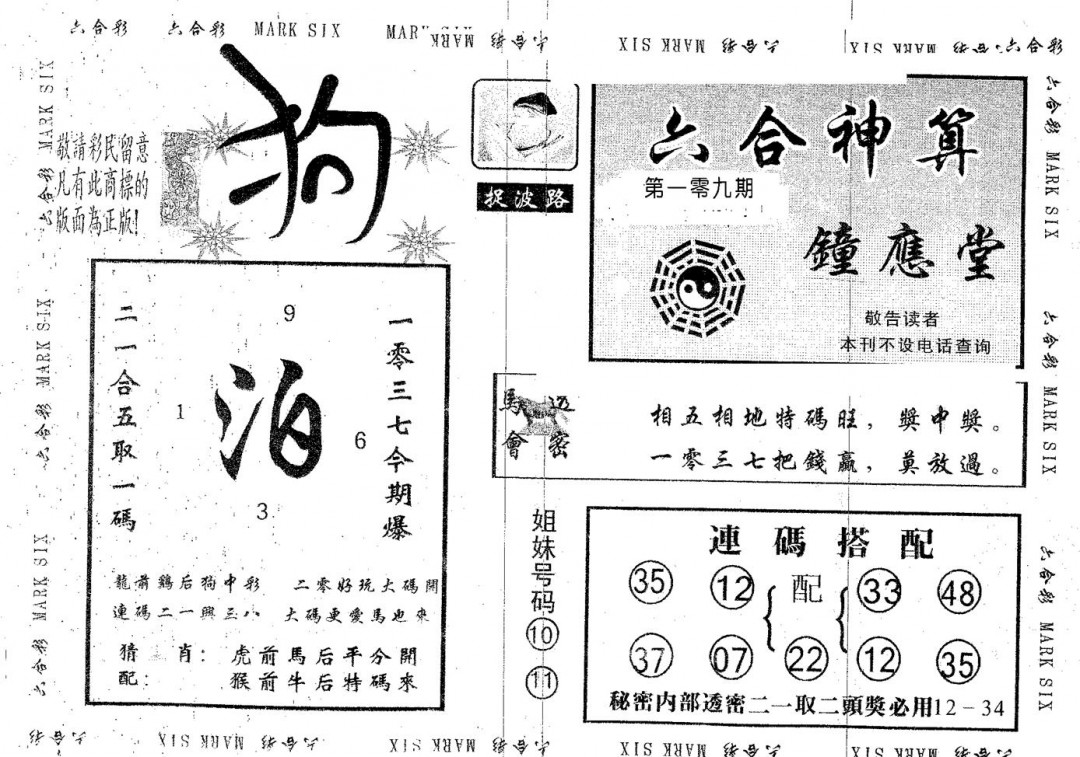 六合彩 六合彩 MARK SIX MAR MARK 六合彩 MARK SIX 六合彩 MARK SIX 六合彩 六合彩
六合彩 MARK SIX 六合彩 MARK SIX 六合彩 MARK SIX
敬請彩民留意
凡有此商標的
版面為正版!
狗
捉波路
六合神算
第一零九期
鐘應堂
敬告读者
本刊不设电话查询
二一合五取一碼
9
1
泊
6
3
一零三七今期爆
龍前鷄后狗中彩 二零好玩大碼開
連碼二一興三八 大碼更愛馬也來
猜 肖: 虎前馬后平分開
配: 猴前牛后特碼來
馬會
透密
相五相地特碼旺,奬中奬。
一零三七把錢贏,莫放過。
姐妹号码
10
11
連碼搭配
35 12 配 33 48
37 07 22 12 35
秘密内部透密二一取二頭奬必用12-34
六合彩 MARK SIX 六合彩 MARK SIX 六合彩 MARK SIX
六合彩 MARK SIX 六合彩 MARK SIX 六合彩 MARK SIX 六合彩 MARK SIX 六合彩